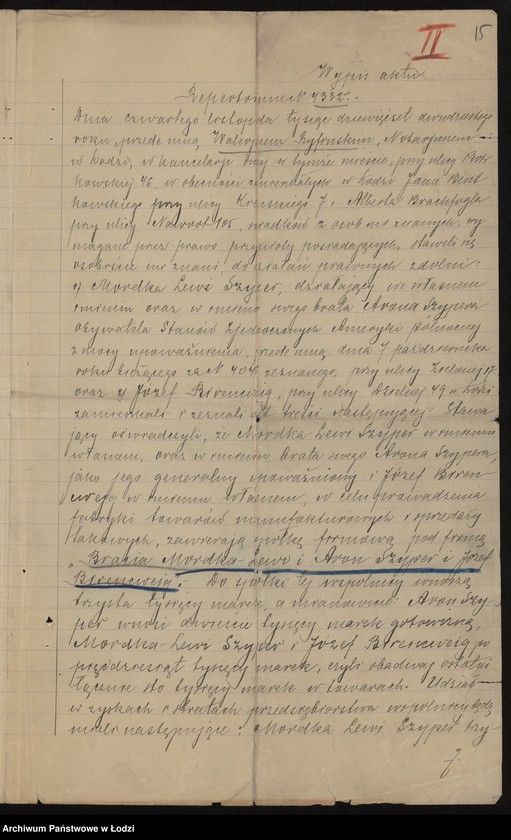 II 15
Wypis aktu
Repertorium N 4332.
Dnia czwartego listopada tysiąc dziewięćset dwudziestego
roku, przede mną, Notarjuszem
w Łodzi, w kancelarji mej w tymże mieście, przy ulicy Piotr
kowskiej 46, w obecności zamieszkałych w Łodzi Jana Bent
kowskiego przy ulicy 7 i Alberta
przy ulicy Nawrot 105, świadków z osób mi znanych, wy
magane przez prawo przymioty posiadających, stawili się
osobiście mi znani, do działań prawnych zdolni:
1) Mordka Lewi Szyper, działający we własnem
imieniu oraz w imieniu swego brata Arona Szypera
obywatela Stanów Zjednoczonych Ameryki północnej
z mocy upoważnienia, przede mną dnia 7 października
roku bieżącego za N zeznanego, przy ulicy Zielonej 17
oraz 2) Józef Birencwejg, przy ulicy Dzielnej 49 w Łodzi
zamieszkali i zeznali akt treści następującej: Stawa
jący oświadczyli, że Mordka Lewi Szyper w imieniu
własnem, oraz w imieniu brata swego Arona Szypera,
jako jego generalny upoważniony i Józef Biren
cwejg w imieniu własnem, w celu prowadzenia
fabryki towarów manufakturowych i sprzedaży
takowych, zawierają spółkę firmową pod firmą
„Bracia Mordka-Lewi i Aron Szyper i Józef
Birencwejg". Do spółki tej wspólnicy wnoszą
trzysta tysięcy marek, a mianowicie: Aron Szy-
per wnosi dwieście tysięcy marek gotowizną,
Mordka-Lewi Szyper i Józef Birencweig po
pięćdziesiąt tysięcy marek, czyli obadwaj ostatni
łącznie sto tysięcy marek w towarach. Udział
w zyskach i stratach przedsiębiorstwa wspólnicy będą
mieli następujące: Mordka Lewi Szyper trzy-
Archiwum Państwowe w Łodzi